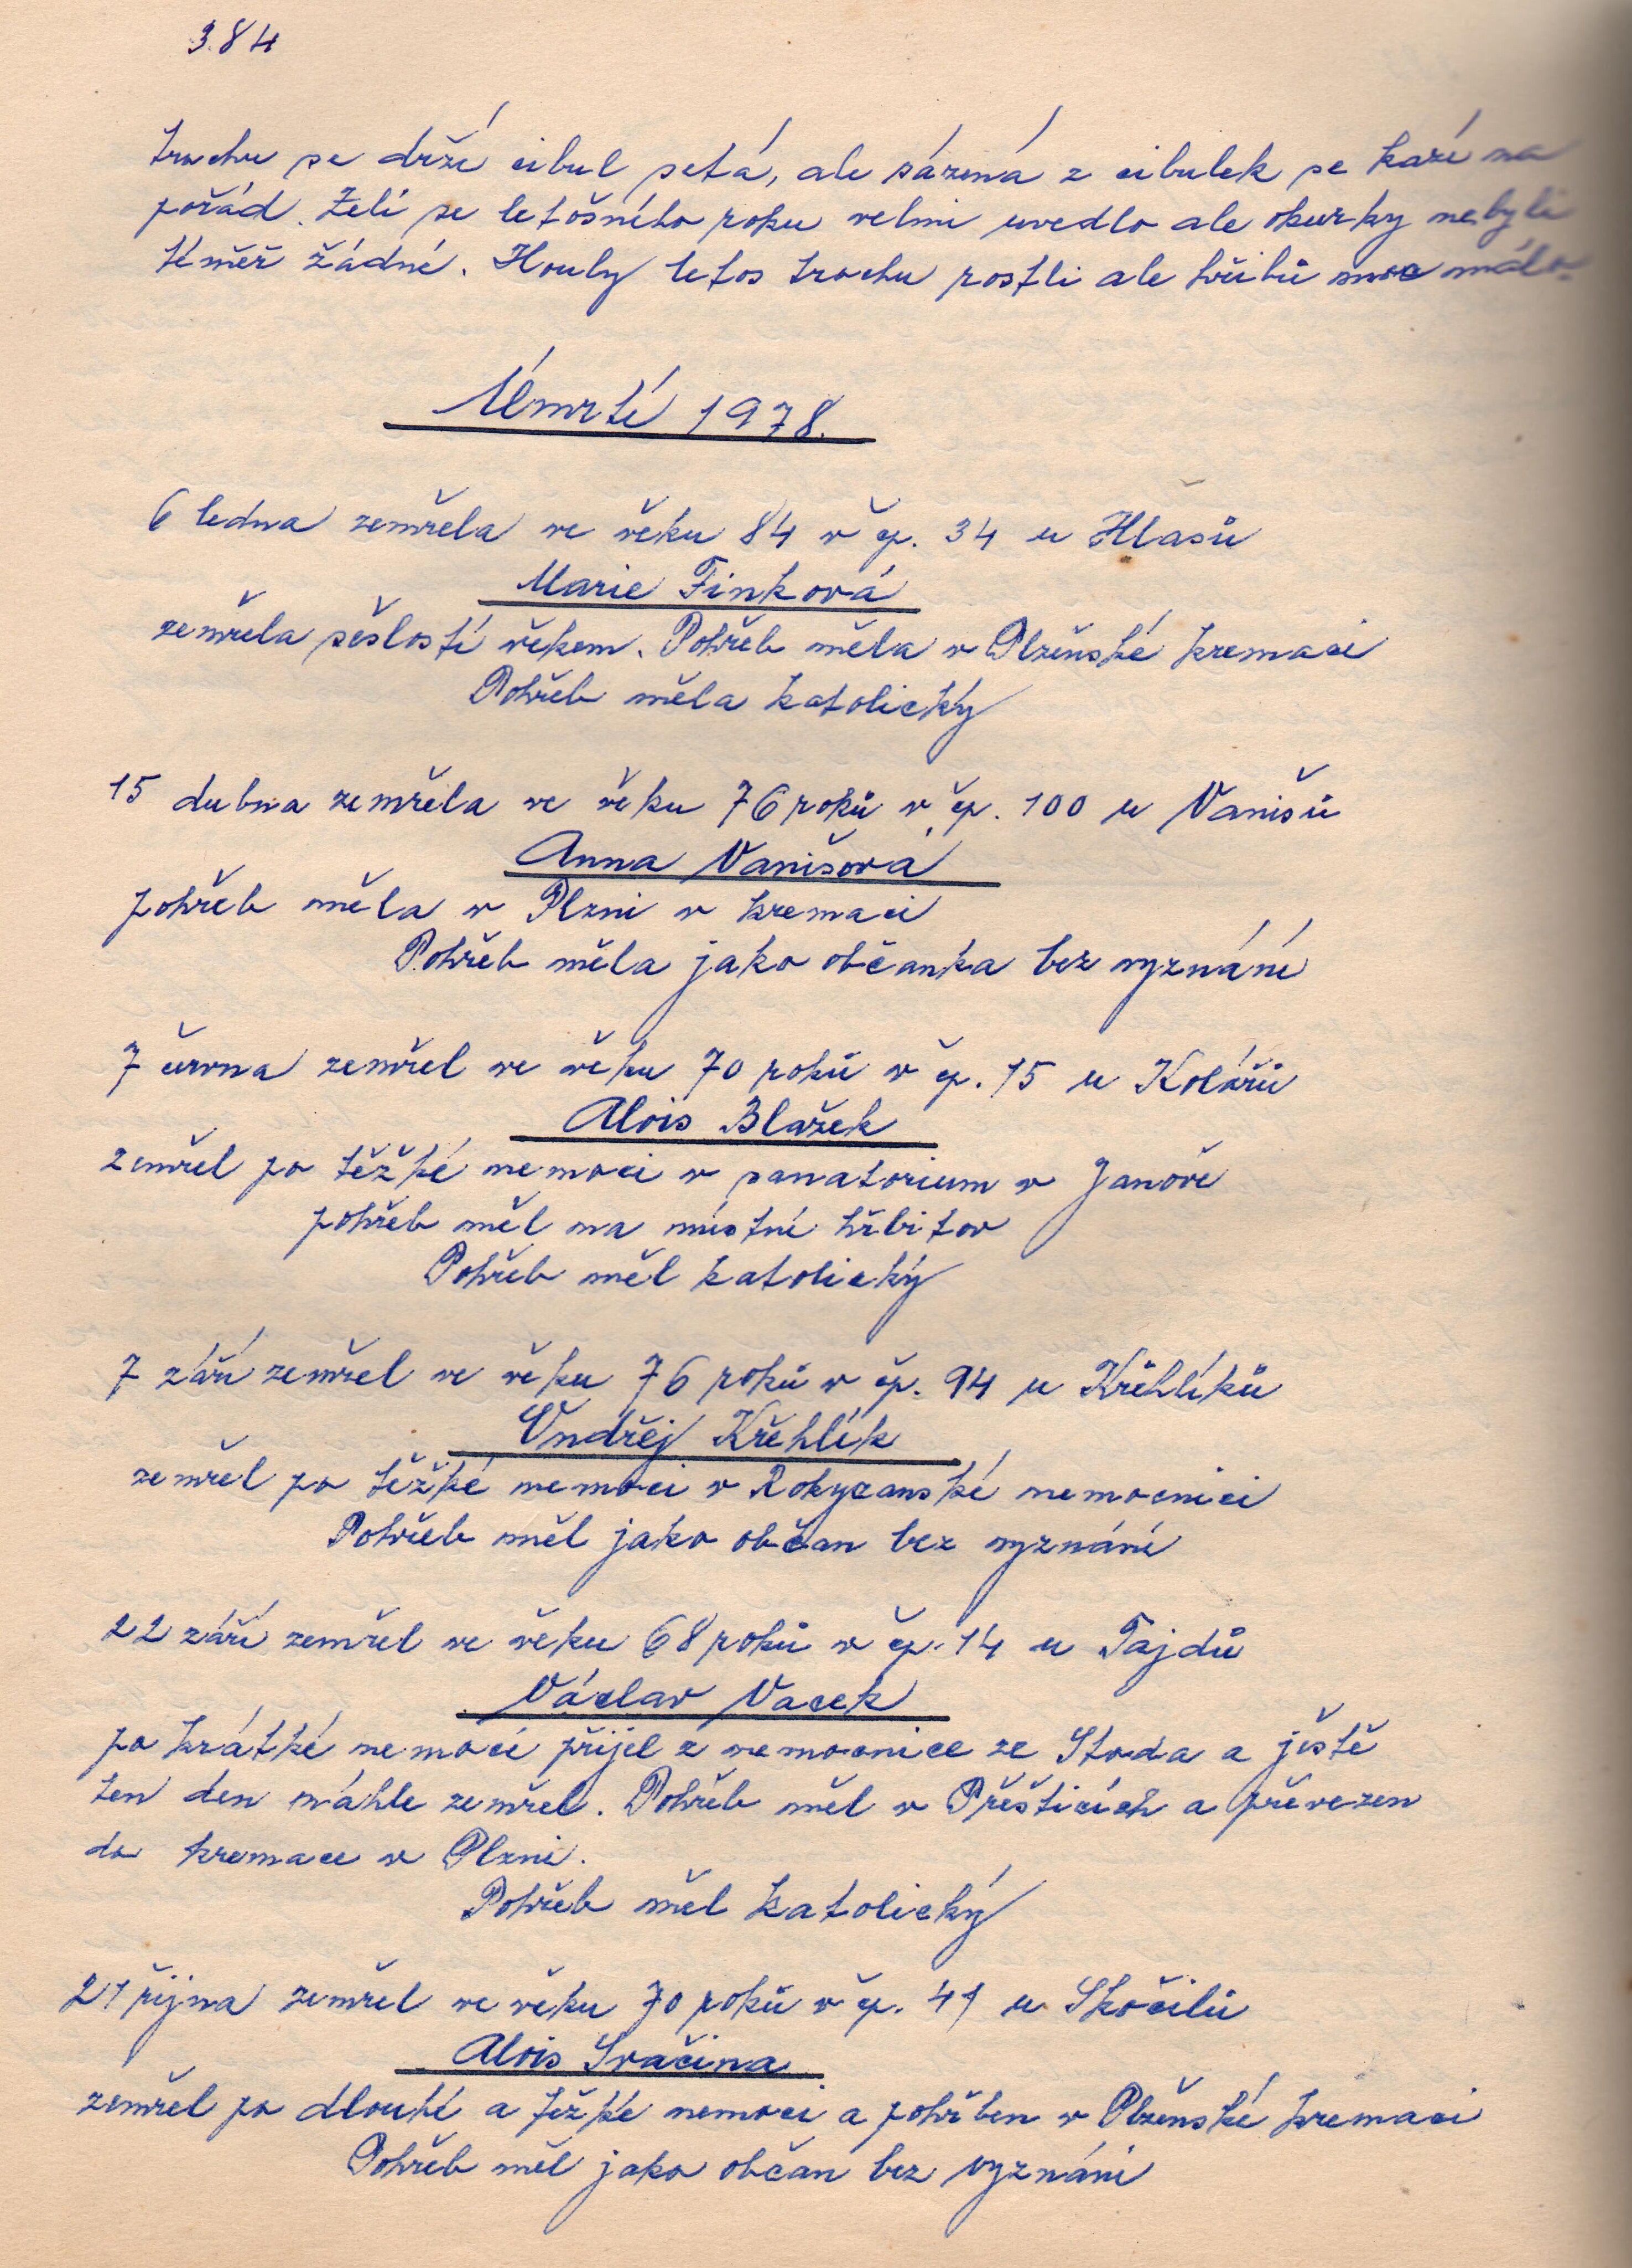 384
trochu se drží cibul setá, ale sázená z cibulek se kazí na
pořád. Zelí se letošního roku velmi uvedlo ale okurky nebyli
téměř žádné. Houby letos trochu rostli ale hřibů moc málo.
Úmrtí 1978.
6 ledna zemřela ve věku 84 v čp. 34 u Hlasů
Marie Finková
zemřela sešlostí věkem. Pohřeb měla v Plzeňské kremaci
Pohřeb měla katolický
15 dubna zemřela ve věku 76 roků v čp. 100 u Vanišů
Anna Vanišová
pohřeb měla v Plzni v kremaci
Pohřeb měla jako občanka bez vyznání
7 června zemřel ve věku 70 roků v čp. 15 u Kolářů
Alois Blažek
zemřel po těžké nemoci v sanatorium v Janově
pohřeb měl na místní hřbitov
Pohřeb měl katolický
7 září zemřel ve věku 76 roků v čp. 94 u Křehlíků
Ondřej Křehlík
zemřel po těžké nemoci v Rokycanské nemocnici
Pohřeb měl jako občan bez vyznání
22 září zemřel ve věku 68 roků v čp. 14 u Tajdů
Václav Vacek
po krátké nemoci přijel z nemocnice ze Stoda a ještě
ten den náhle zemřel. Pohřeb měl v Přešticích a převezen
do kremace v Plzni.
Pohřeb měl katolický
21 října zemřel ve věku 70 roků v čp. 41 u Skočilů
Alois Svačina
zemřel po dlouhé a težké nemoci a pohřben v Plzeňské kremaci
Pohřeb měl jako občan bez vyznání